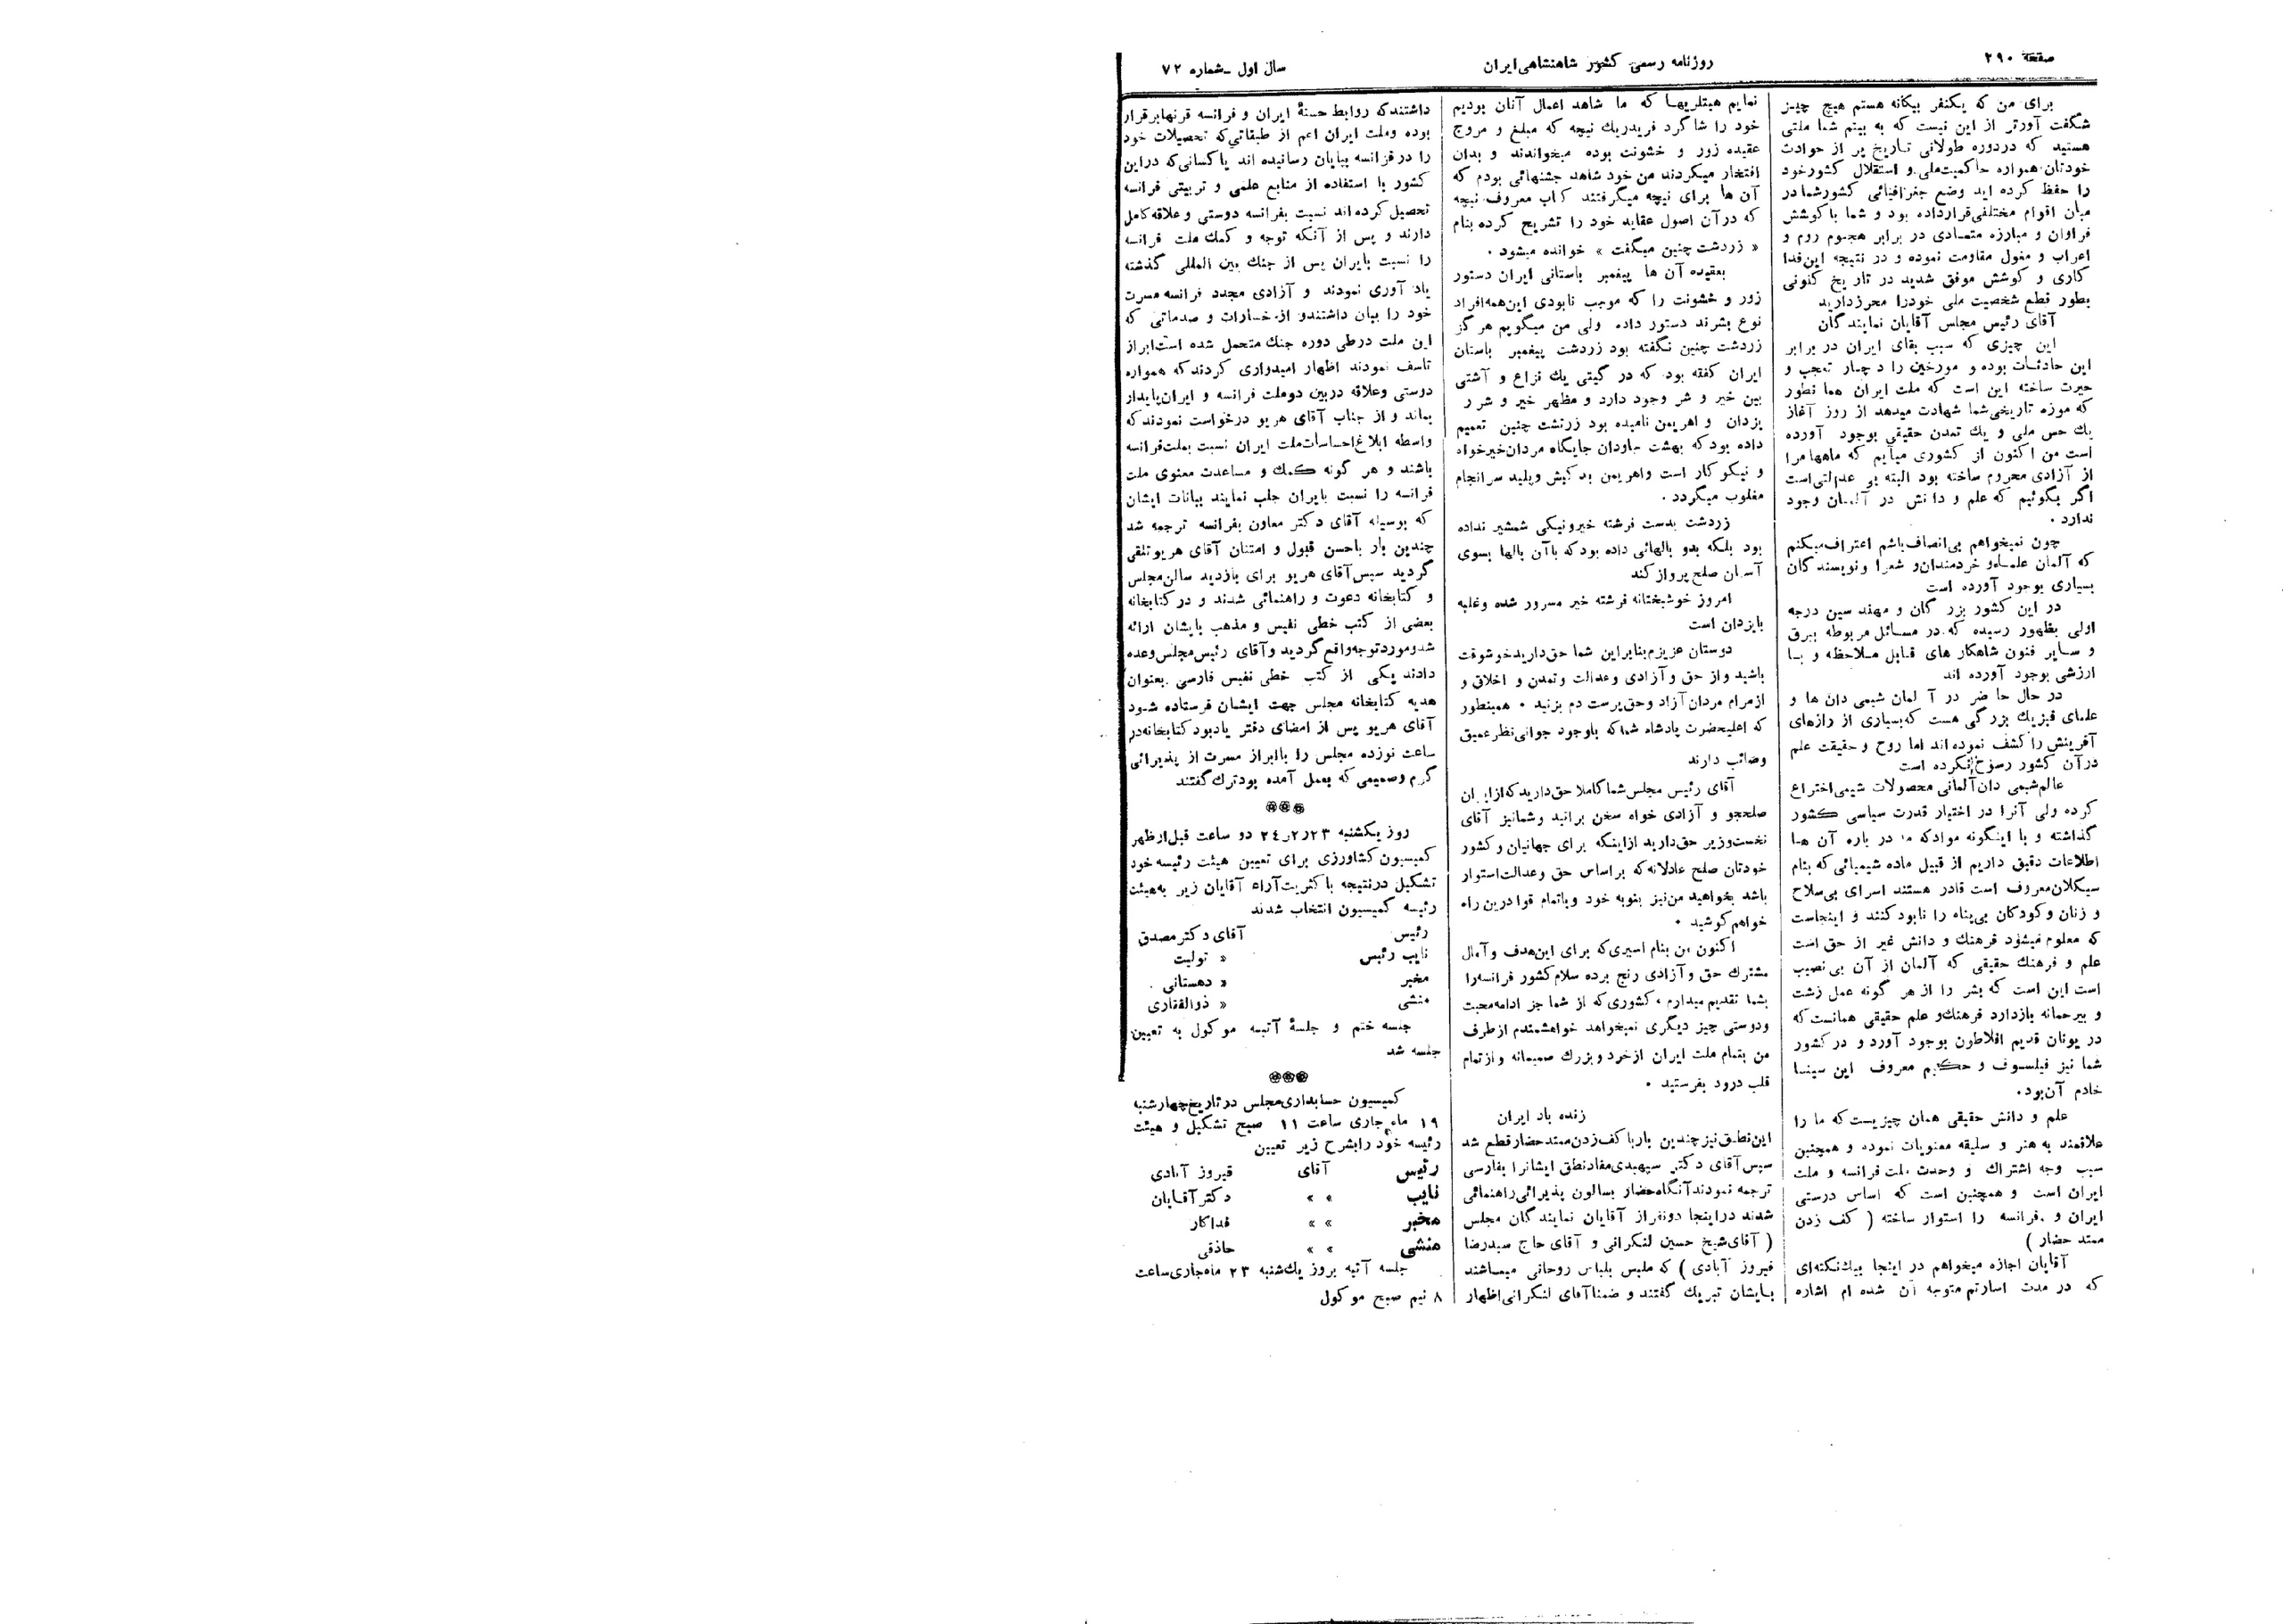 صفحه ۲۹۰
روزنامه رسمی کشور شاهنشاهی ایران
سال اول ـ شماره ۷۲
برای من که یکنفر بیگانه هستم هیچ چیز
شگفت آورتر از این نیست که به بینم شما ملتی
هستید که دردوره طولانی تاریخ پر از حوادث
خودتان همواره حاکمیت‌ملی و استقلال کشورخود
را حفظ کرده اید وضع جغرافیائی کشورشما در
میان اقوام مختلفی قرارداده بود و شما باکوشش
فراوان و مبارزه متمادی در برابر هجوم روم و
اعراب و مغول مقاومت نموده و در نتیجه این‌فدا
کاری و کوشش موفق شدید در تاریخ کنونی
بطور قطع شخصیت ملی خودرا محرزدارید
آقای رئیس مجلس آقایان نمایندگان
این چیزی که سبب بقای ایران در برابر
این حادثات بوده و مورخین را دچار تعجب و
حیرت ساخته این است که ملت ایران همانطور
که موزه تاریخی‌شما شهادت میدهد از روز آغاز
یك حس ملی و یك تمدن حقیقی بوجود آورده
است من اکنون از کشوری میآیم که ماهها مرا
از آزادی محروم ساخته بود البته بی عدالتی‌است
اگر بگوئیم که علم و دانش در آلمان وجود
ندارد .
چون نمیخواهم بی‌انصاف‌باشم اعتراف‌میکنم
که آلمان علماء و خردمندان‌و شعرا و نویسندگان
بسیاری بوجود آورده است
در این کشور بزرگان و مهندسین درجه
اولی بظهور رسیده که در مسائل مربوطه ببرق
و سایر فنون شاهکار های قابل ملاحظه و با
ارزشی بوجود آورده اند
در حال حاضر در آلمان شیمی دان ها و
علمای فیزیك بزرگی هست که‌بسیاری از رازهای
آفرینش را کشف نموده‌اند اما روح و حقیقت علم
درآن کشور رسوخ نکرده است
عالم‌شیمی دان‌آلمانی محصولات شیمی‌اختراع
کرده ولی آنرا در اختیار قدرت سیاسی کشور
گذاشته و با اینگونه موادکه ما در باره آن ها
اطلاعات دقیق داریم از قبیل ماده شیمیائی که بنام
سیکلان‌معروف است قادر هستند اسرای بی‌سلاح
و زنان و کودکان بی‌پناه را نابود کنند و اینجاست
که معلوم میشود فرهنك و دانش غیر از حق است
علم و فرهنك حقیقی که آلمان از آن بی‌نصیب
است این است که بشر را از هر گونه عمل زشت
و بیرحمانه بازدارد فرهنك‌و علم حقیقی همانست‌که
در یونان قدیم افلاطون بوجود آورد و در کشور
شما نیز فیلسوف و حکیم معروف ابن سینا
خادم آن‌بود.
علم و دانش حقیقی همان چیزیست‌که ما را
علاقمند به هنر و سلیقه معنویات نموده و همچنین
سبب وجه اشتراك و وحدت ملت فرانسه و ملت
ایران است و همچنین است که اساس درستی
ایران و فرانسه را استوار ساخته ( کف زدن
ممتد حضار )
آقایان اجازه میخواهم در اینجا بیك‌نکته‌ای
که در مدت اسارتم متوجه آن شده ام اشاره
نمایم هیتلریها که ما شاهد اعمال آنان بودیم
خود را شاگرد فریدریك نیچه که مبلغ و مروج
عقیده زور و خشونت بوده میخواندند و بدان
افتخار میکردند من خود شاهد جشنهائی بودم که
آن ها برای نیچه میگرفتند کتاب معروف نیچه
که درآن اصول عقاید خود را تشریح کرده بنام
« زردشت چنین میگفت » خوانده میشود .
بعقیده آن ها پیغمبر باستانی ایران دستور
زور و خشونت را که موجب نابودی این‌همه‌افراد
نوع بشرند دستور داده ولی من میگویم هرگز
زردشت چنین نگفته بود زردشت پیغمبر باستان
ایران گفته بود که در گیتی یك نزاع و آشتی
بین خیر و شر وجود دارد و مظهر خیر و شر ر
یزدان و اهریمن نامیده بود زرتشت چنین تعمیم
داده بودکه بهشت جاودان جایگاه مردان‌خیرخواه
و نیکوکار است واهریمن بدکیش وپلید سرانجام
مغلوب میگردد .
زردشت بدست فرشته خیرونیکی شمشیر نداده
بود بلکه بدو بالهائی داده بودکه باآن بالها بسوی
آسمان صلح پرواز کند
امروز خوشبختانه فرشته خیر مسرور شده وغلبه
بایزدان است
دوستان عزیزم‌بنابراین شما حق‌دارید‌خوشوقت
باشید و از حق و آزادی وعدالت وتمدن و اخلاق و
ازمرام مردان آزاد وحق‌پرست دم بزنید . همینطور
که اعلیحضرت پادشاه شماکه باوجود جوانی‌نظر‌عمیق
وصائب دارند
آقای رئیس مجلس‌شما‌کاملا حق‌داریدکه‌ازایران
صلحجو و آزادی خواه سخن برانید وشمانیز آقای
نخست‌وزیر حق‌دارید ازاینکه برای جهانیان و کشور
خودتان صلح عادلانه‌که براساس حق وعدالت‌استوار
باشد بخواهید من‌نیز بنوبه خود وباتمام قوا درین راه
خواهم‌کوشید .
اکنون من بنام اسیری‌که برای این‌هدف و آمال
مشترك حق و آزادی رنج برده سلام کشور فرانسه‌را
بشما تقدیم میدارم ، کشوری‌که از شما جز ادامه‌محبت
ودوستی چیز دیگری نمیخواهد خواهشمندم ازطرف
من بتمام ملت ایران ازخرد و بزرك صمیمانه و ازتمام
قلب درود بفرستید .
زنده باد ایران
این‌نطق‌نیزچندین باربا‌کف‌زدن‌ممتد‌حضارقطع شد
سپس آقای دکتر سپهبدی‌مفاد‌نطق ایشانرا بفارسی
ترجمه نمودند‌آنگاه‌حضار بسالون پذیرائی‌راهنمائی
شدند دراینجا دونفراز آقایان نمایندگان مجلس
( آقای‌شیخ حسین لنکرانی و آقای حاج سیدرضا
فیروز آبادی ) که ملبس بلباس روحانی میباشند
بایشان تبریك گفتند و ضمناآقای لنکرانی‌اظهار
داشتندکه روابط حسنهٔ ایران و فرانسه قرنهابرقرار
بوده وملت ایران اعم از طبقاتی‌که تحصیلات خود
را درفرانسه بپایان رسانیده اند یاکسانی‌که دراین
کشور با استفاده از منابع علمی و تربیتی فرانسه
تحصیل کرده‌اند نسبت بفرانسه دوستی و علاقه‌کامل
دارند و پس از آنکه توجه و کمك ملت فرانسه
را نسبت بایران پس از جنك بین المللی گذشته
یاد آوری نمودند و آزادی مجدد فرانسه مسرت
خود را بیان داشتندو از خسارات و صدماتی که
این ملت درطی دوره جنك متحمل شده است‌ابراز
تاسف نمودند اظهار امیدواری کردندکه همواره
دوستی وعلاقه دربین دوملت فرانسه و ایران‌پایدار
بماند و از جناب آقای هریو درخواست نمودندکه
واسطه ابلاغ‌احساسات‌ملت ایران نسبت بملت‌فرانسه
باشند و هر گونه کمك و مساعدت معنوی ملت
فرانسه را نسبت بایران جلب نمایند بیانات ایشان
که بوسیله آقای دکتر معاون بفرانسه ترجمه شد
چندین بار باحسن قبول و امتنان آقای هریو‌تلقی
گردید سپس‌آقای هریو برای بازدید سالن‌مجلس
و کتابخانه دعوت و راهنمائی شدند و درکتابخانه
بعضی از کتب خطی نفیس و مذهب بایشان ارائه
شد‌ومورد‌توجه‌واقع‌گردید وآقای رئیس‌مجلس‌وعده
دادند یکی از کتب خطی نفیس فارسی بعنوان
هدیه کتابخانه مجلس جهت ایشان فرستاده شود
آقای هریو پس از امضای دفتر یادبود کتابخانه‌در
ساعت نوزده مجلس را باابراز مسرت از پذیرائی
گرم وصمیمی که بعمل آمده بودترك گفتند
روز یکشنبه ۲۴/۲/۲۳ دو ساعت قبل‌ازظهر
کمیسیون کشاورزی برای تعیین هیئت رئیسه خود
تشکیل درنتیجه باکثریت‌آراء آقایان زیر به‌هیئت
رئیسه کمیسیون انتخاب شدند
رئیس آقای دکترمصدق
نایب رئیس « تولیت
مخبر « دهستانی
منشی « ذوالفقاری
جلسه ختم و جلسهٔ آتیه موکول به تعیین
جلسه شد
کمیسیون حسابداری‌مجلس درتاریخ‌چهارشنبه
۱۹ ماه جاری ساعت ۱۱ صبح تشکیل و هیئت
رئیسه خود رابشرح زیر تعیین
رئیس آقای فیروز آبادی
نایب » » دکترآقایان
مخبر » » فداکار
منشی » » حاذقی
جلسه آتیه بروز یك‌شنبه ۲۳ ماه‌جاری‌ساعت
۸ نیم صبح موکول